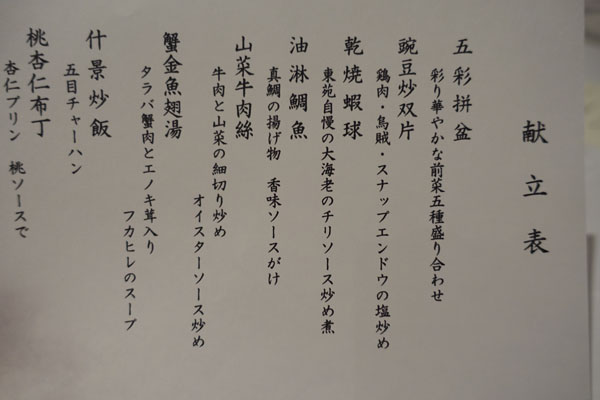 献立表
五彩拼盆
彩り華やかな前菜五種盛り合わせ
豌豆炒双片
鶏肉・烏賊・スナップエンドウの塩炒め
乾焼蝦球
東苑自慢の大海老のチリソース炒め煮
油淋鯛魚
真鯛の揚げ物　香味ソースがけ
山菜牛肉絲
牛肉と山菜の細切り炒め
オイスターソース炒め
蟹金魚翅湯
タラバ蟹肉とエノキ茸入り
フカヒレのスープ
什景炒飯
五目チャーハン
桃杏仁布丁
杏仁プリン　桃ソースで